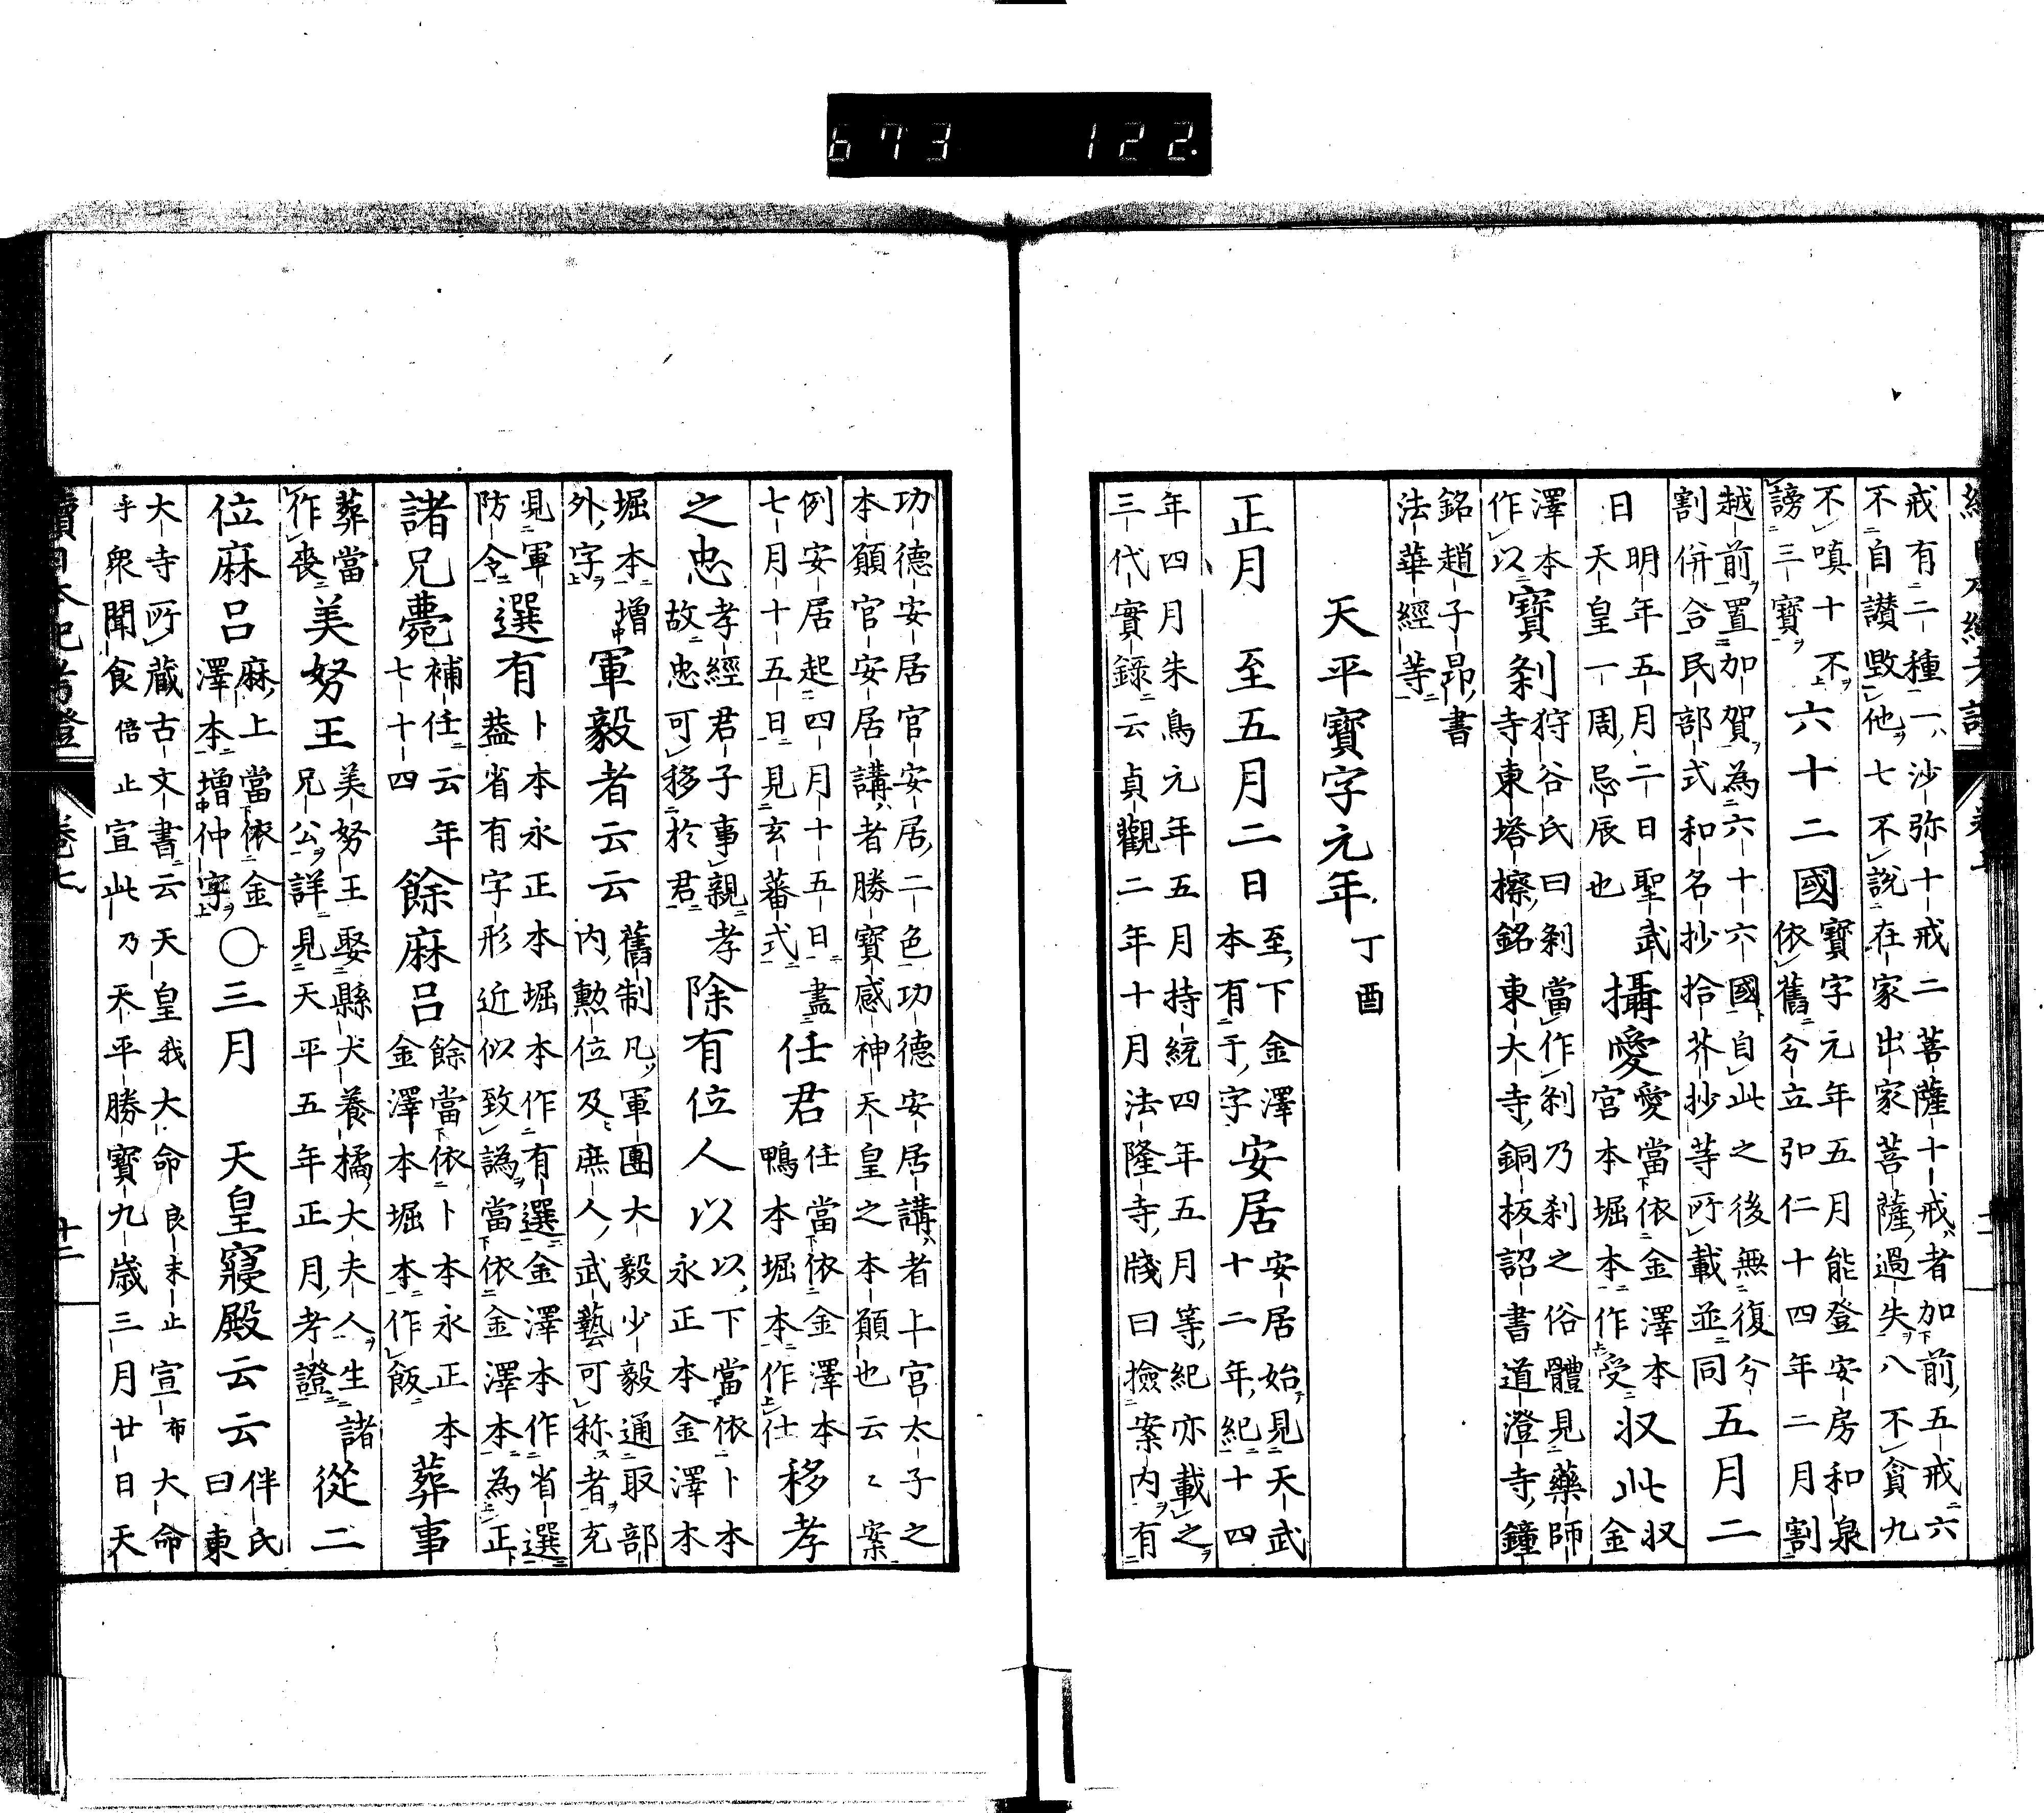 673 122.
戒有二種一沙弥十戒二菩薩十戒者加前五戒六
不自讃毀他七不說在家出家菩薩過失八不貪九
不嗔十不
謗三寶
六十二國
寶字元年五月能登安房和泉
依舊兮立弘仁十四年二月割
越前置加賀為六十六國自此之後無復兮
割併合民部式和名抄拾芥抄等所載並同
五月二
日
明年五月二日聖武
天皇一周忌辰也
攝愛
愛當依金澤本
宮本堀本作受
収此
収
金
澤本
作以
寶剎
狩谷氏曰剎當作刹乃刹之俗體見藥師
寺東塔檫銘東大寺銅板詔書道澄寺鐘
銘趙子昂書
法華經等
天平寶字元年丁酉
正月 至五月二日
至下金澤
本有于字
安居
安居始見天武
十二年紀十四
年四月朱鳥元年五月持統四年五月等紀亦載之
三代實錄云貞觀二年十月法隆寺牋曰撿案内有
功德安居官安居二色功德安居講者上宮太子之
本願官安居講者勝寶感神天皇之本願也云〻案
例安居起四月十五日盡
七月十五日見玄蕃式
任君
任當依金澤本
鴨本堀本作仕
移孝
之忠
孝經君子事親孝
故忠可移於君
除有位人以
以下當依卜本
永正本金澤本
堀本增
外字
軍毅者云云
舊制凡軍團大毅少毅通取部
内勲位及庶人武藝可称者充
見軍
防令
選有
卜本永正本堀本作有選金澤本作省選
葢省有字形近似致譌當依金澤本為正
諸兄薨
補任云年
七十四
餘麻呂
餘當依卜本永正本
金澤本堀本作飯
葬事
葬當
作喪
美努王
美努王娶縣犬養橘大夫人生諸
兄公詳見天平五年正月考證
從二
位麻呂
麻上當依金
澤本增仲字
〇三月 天皇寢殿云云
伴氏
曰東
大寺所藏古文書云天皇我大命良末止宣布大命
乎衆聞食倍止宣此乃天平勝寶九歳三月廿日天
續日本紀考證 卷七 十二